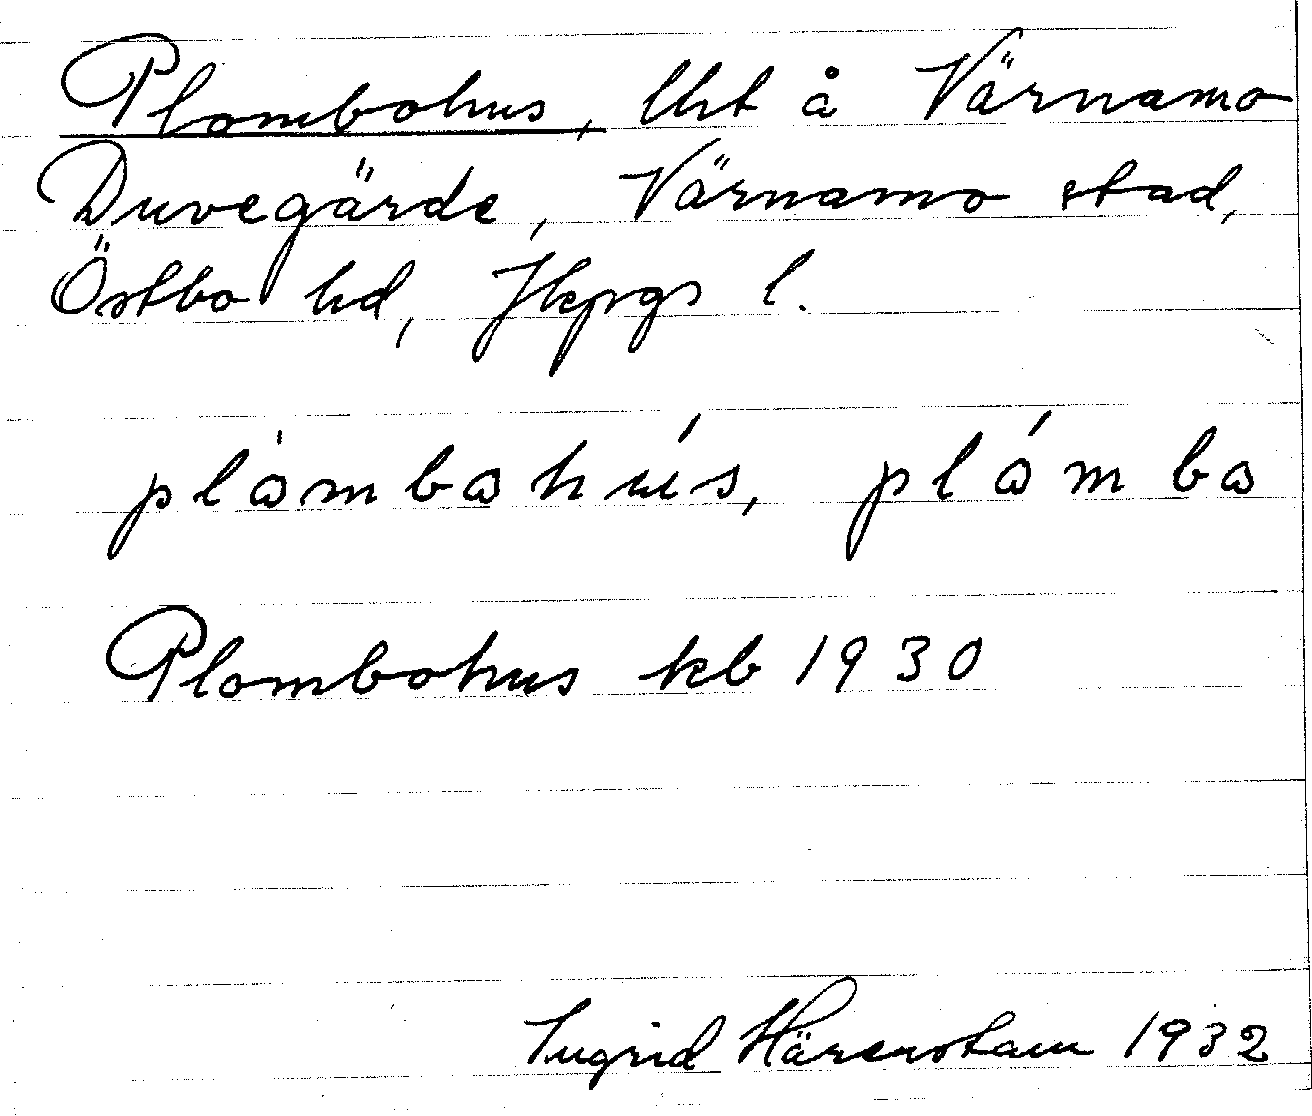 Plombohus, lht å Värnamo
Duvegärde, Värnamo stad,
Östbo hd, Jkpgs l.
plòmbohús, plómbo
Plombohus kb 1930
Ingrid Härenstam 1932